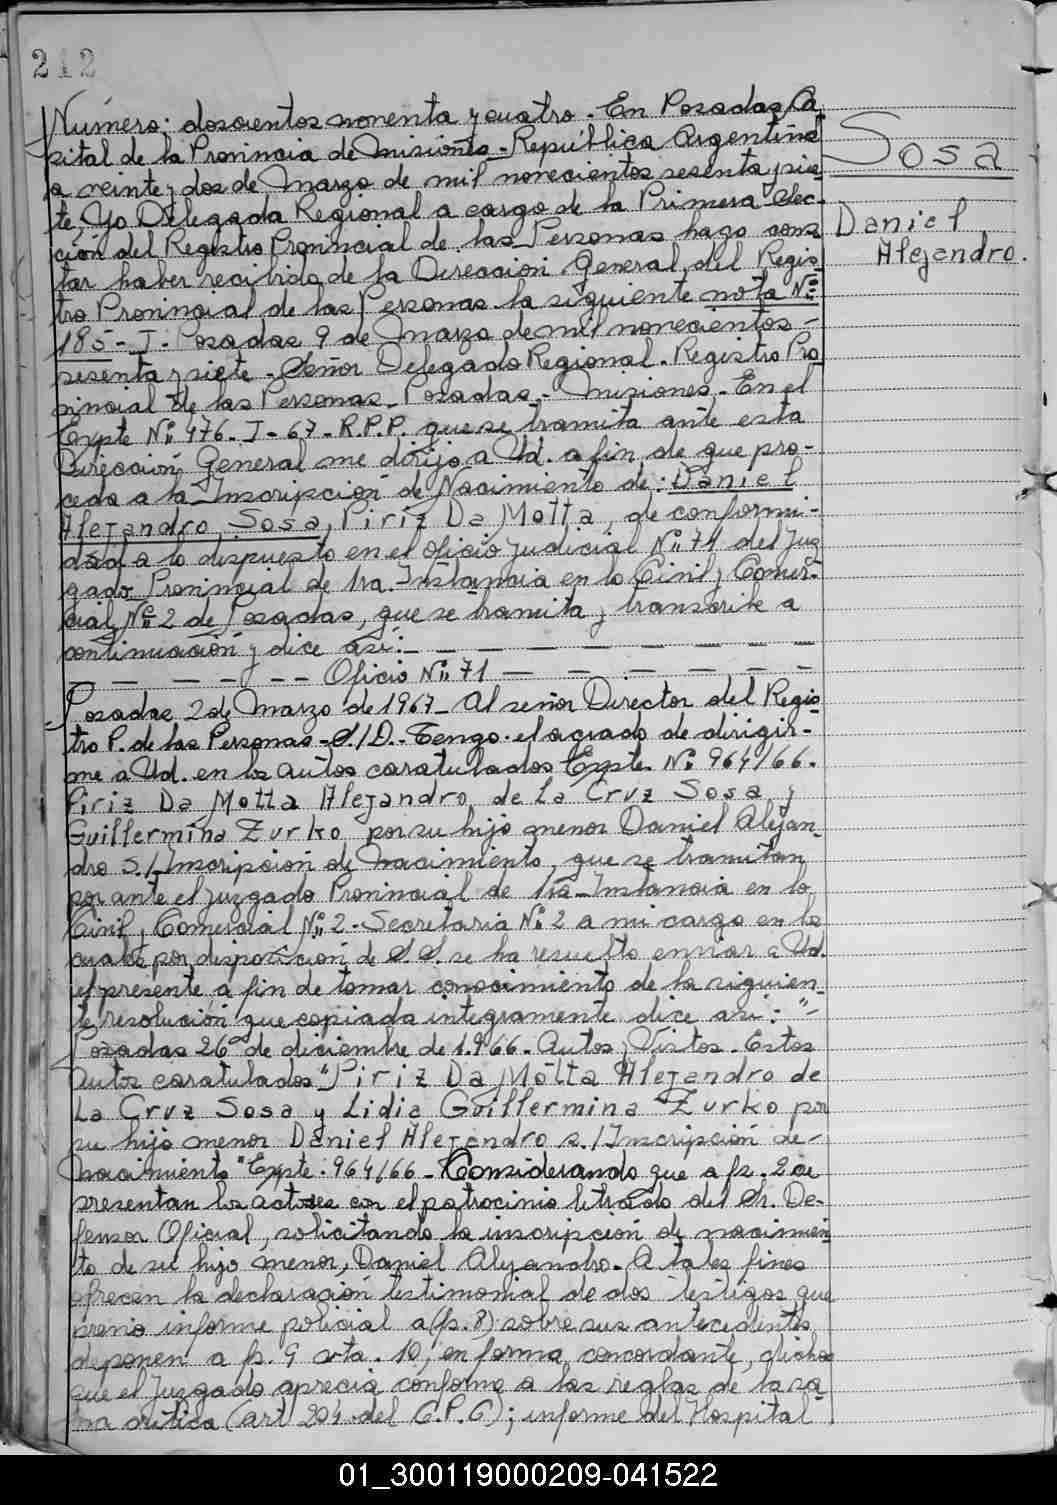 212
Número: doscientos noventa y cuatro. En Posadas, Ca
pital de la Provincia de Misiones - República Argentina
a veinte y dos de Marzo de mil novecientos sesenta y sie-
te, Yo Delegada Regional a cargo de la Primera Sec-
ción del Registro Provincial de las Personas hago cons
tar haber recibido de la Dirección General del Regis-
tro Provincial de las Personas la siguiente nota Nº:
185 - I - Posadas 9 de Marzo de mil novecientos -
sesenta y siete - Señor Delegado Regional - Registro Pro
vincial de las Personas - Posadas - Misiones - En el
Expte Nº 476 - I - 67 - R.P.P. que se tramita ante esta
Dirección General me dirijo a Ud. a fin de que pro-
ceda a la Inscripción de Nacimiento de: Daniel
Alejandro Sosa, Piriz Da Motta, de conformi-
dad a lo dispuesto en el oficio Judicial Nº 71 del Juz
gado Provincial de 1ra. Instancia en lo Civil y Comer-
cial Nº 2 de Posadas, que se tramita y transcribe a
continuación y dice así: - - - - - - - -
- - - - - - Oficio Nº 71 - - - - - -
Posadas 2 de Marzo de 1967 - Al señor Director del Regis-
tro P. de las Personas - S/D. - Tengo el agrado de dirigir-
me a Ud. en los autos caratulados Expte. Nº 964/66.
Piriz Da Motta Alejandro de La Cruz Sosa y
Guillermina Zurko por su hijo menor Daniel Alejan-
dro S./Inscripción de Nacimiento, que se tramitan
por ante el Juzgado Provincial de 1ra Instancia en lo
Civil y Comercial Nº 2 - Secretaria Nº 2 a mi cargo en los
cuales por disposición de S.S. se ha resuelto enviar a Ud.
el presente a fin de tomar conocimiento de la siguien-
te resolución que copiada integramente dice así: "-
Posadas 26 de diciembre de 1.966. Autos y Vistos. Estos
Autos caratulados "Piriz Da Motta Alejandro de
La Cruz Sosa y Lidia Guillermina Zurko por
su hijo menor Daniel Alejandro s./Inscripción de-
nacimiento" Expte: 964/66 - Considerando que a fs. 2 se
presentan los actores con el patrocinio letrado del Sr. De-
fensor Oficial, solicitando la inscripción de nacimien
to de su hijo menor, Daniel Alejandro. A tales fines
ofrecen la declaración testimonial de dos testigos que
previo informe policial a (fs. 8) sobre sus antecedentes
deponen a fs. 9 vta. 10, en forma concordante, dichos
que el Juzgado aprecia conforme a las reglas de la sa
na critica (art 204 del C.P.C); informe del Hospital
Sosa
Daniel
Alejandro.
01_300119000209-041522